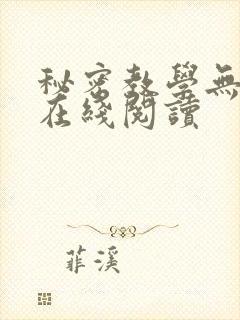 秘密教學無
在綫閱讀
菲溪